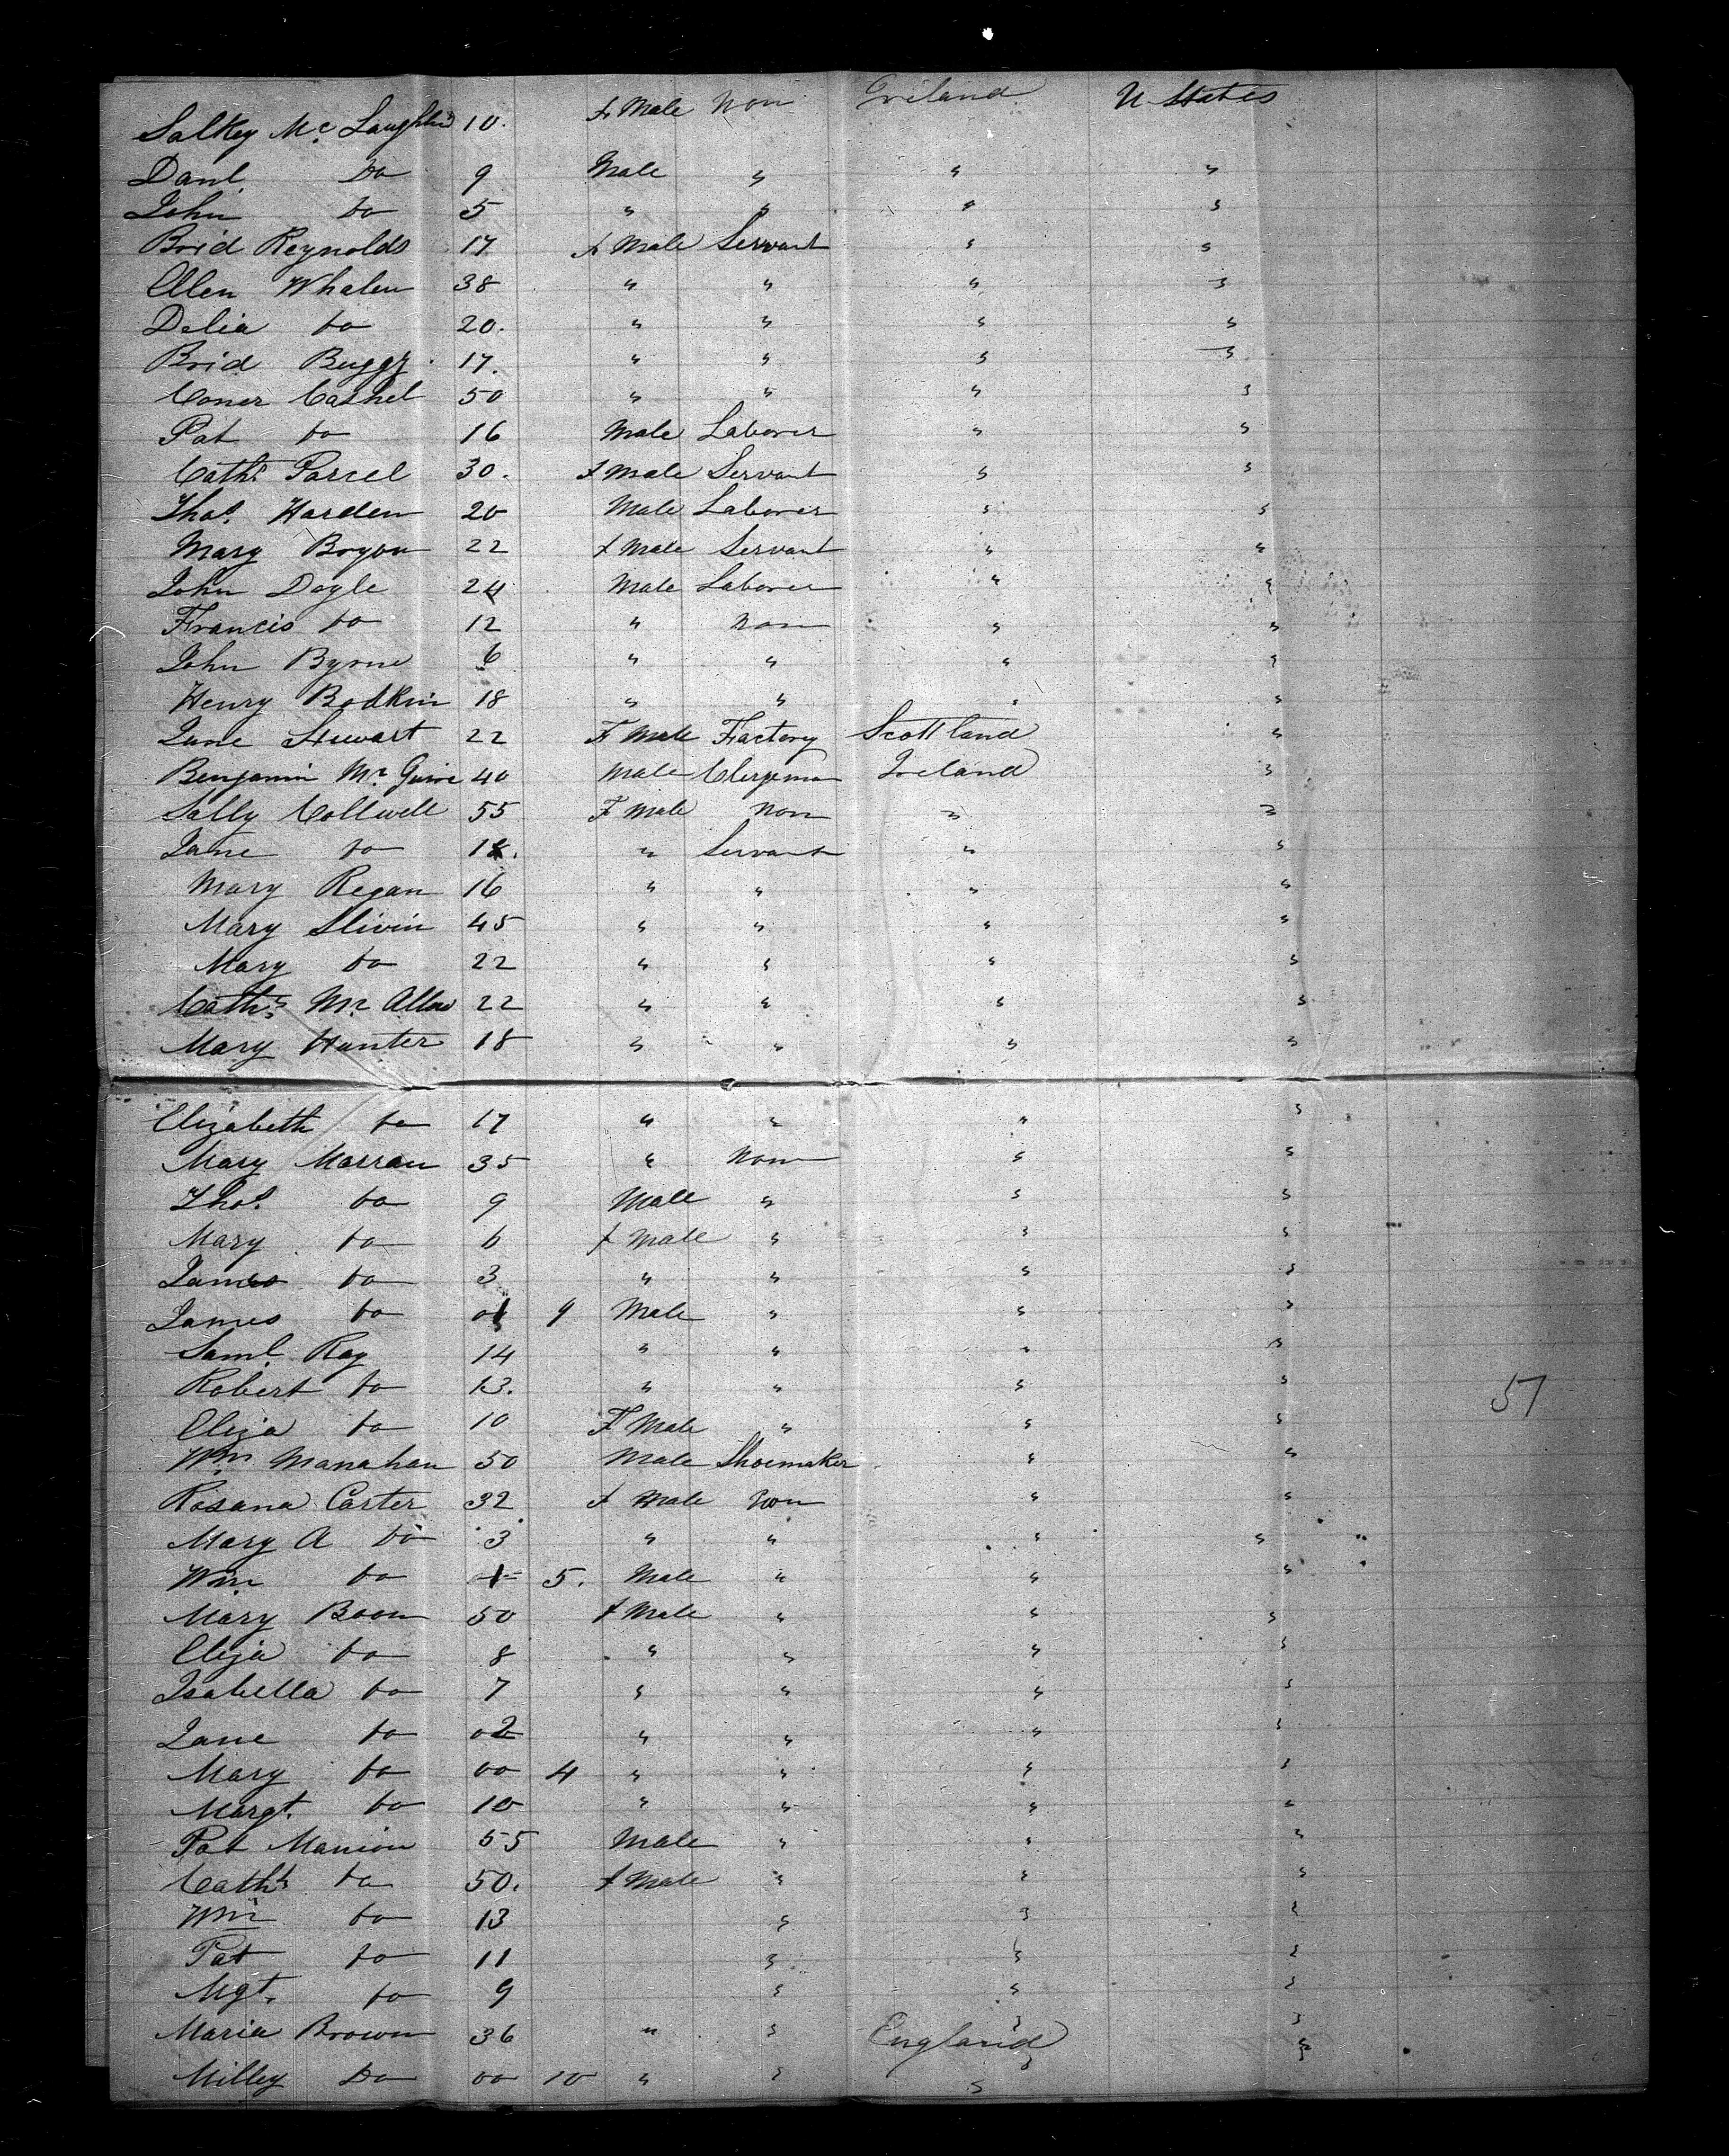 Salkey Mc Laughlin 10. f Male Non Ireland U States
Danl. Do 9 Male " " "
John do 5 " " " "
Brid Reynolds 17 f Male Servant " "
Ellen Whalen 38 " " " "
Delia do 20. " " " "
Brid Buggy 17. " " " "
Coner Cashel 50 " " " "
Pat do 16 Male Laborer " "
Cathe Parcel 30. f Male Servant " "
Thos. Harden 20 Male Laborer " "
Mary Bryon 22 f Male Servant " "
John Dogle 24 Male Laborer " "
Francis do 12 " Non " "
John Byrne 6 " " " "
Henry Bodkin 18 " " " "
Jane Stewart 22 F Male Factory Scottland "
Benjamin Mc Guire 40 Male Clergeman Ireland "
Sally Collwell 55 F Male Non " "
Jane do " Servant " "
Mary Regan 16 " " " "
Mary Slivin 45 " " " "
Mary do 22 " " " "
Cathe Mc Allow 22 " " " "
Mary Hunter 18 " " " "
Elizabeth do 17 " " " "
Mary Marran 35 " Non " "
Thos. do 9 Male " " "
Mary do 6 f Male " " "
James do 3 " " " "
James do 9 Male " " "
Saml. Ray 14 " " " "
Robert do 13. " " " "
Eliza do 10 F Male " " "
Wm Manahan 50 Male Shoemaker " "
Rosana Carter 32 f Male Non " "
Mary A do 3 " " " "
Wm do 1 5. Male " " "
Mary Boon 50 f Male " " "
Eliza do 8 " " " "
Isabella do 7 " " " "
Jane do 02 " " " "
Mary do 00 4 " " " "
Margt. do 10 " " " "
Pat Manion 55 Male " " "
Cathe do 50. f Male " " "
Wm do 13 " " "
Pat do 11 " " "
Mgt. do 9 " " "
Maria Brown 36 " " England "
Milley Do 00 10 " " " "
57